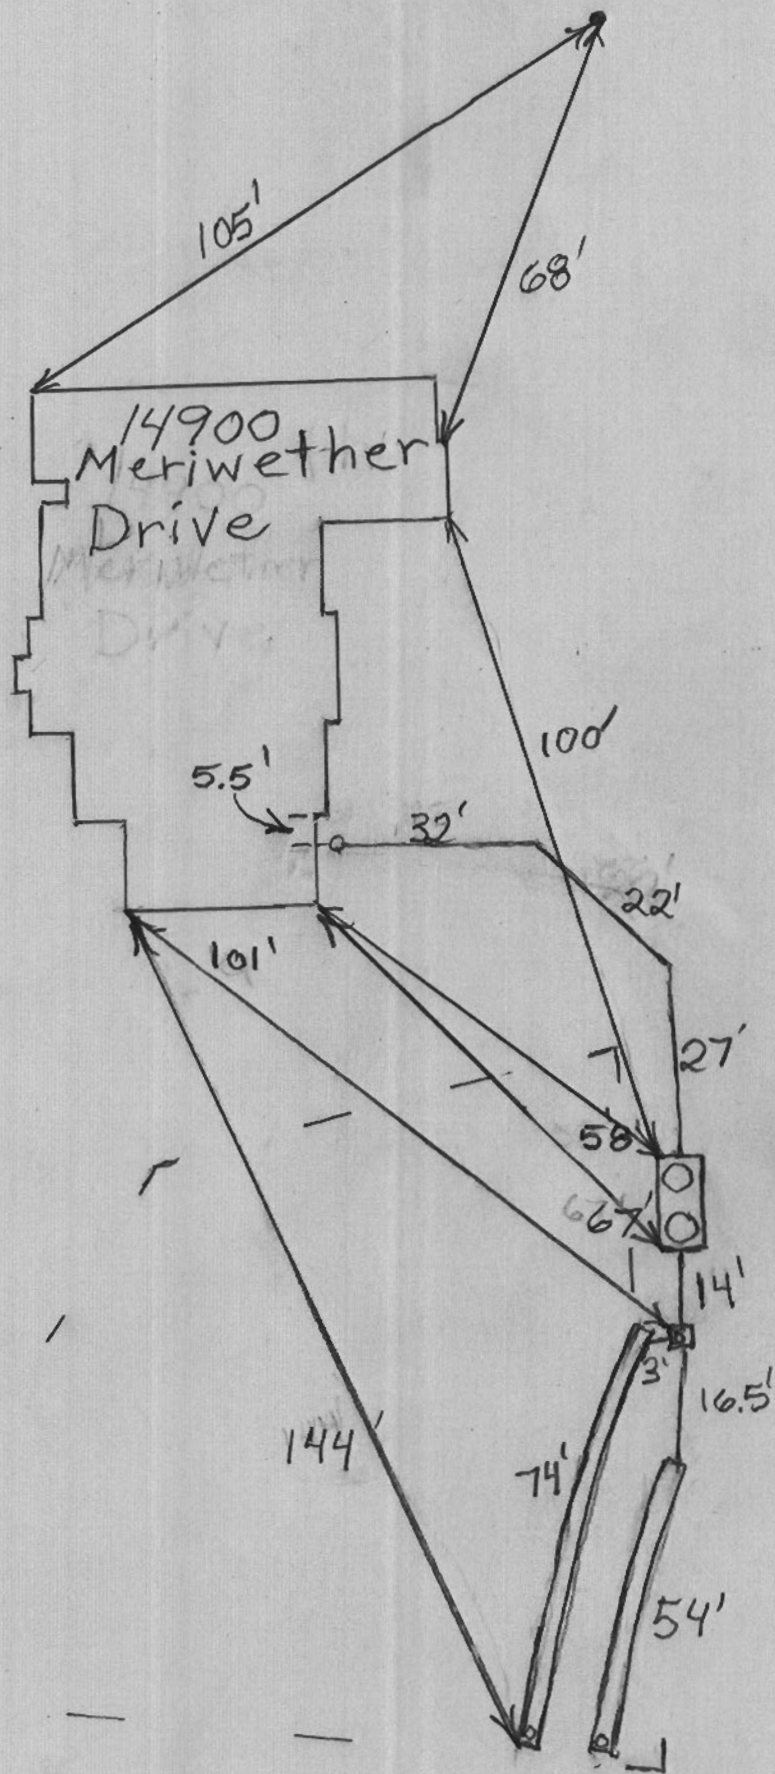 105'
68'
14900
Meriwether
Drive
100'
5.5'
32'
22'
101'
27'
58'
67'
14'
3'
16.5'
144'
74'
54'